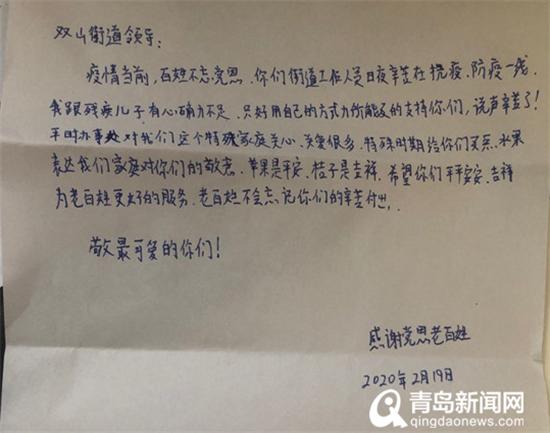 双山街道领导:
疫情当前,百姓不忘党恩,你们街道工作人员日夜辛苦在抗疫、防疫一线,
我跟残疾儿子有心确力不足,只好用自己的方式力所能及的支持你们,说声辛苦了!
平时办事处对我们这个特殊家庭关心、关爱很多,特殊时期给你们买点水果
表达我们家庭对你们的敬意,苹果是平安,桔子是吉祥,希望你们平平安安、吉祥
为老百姓更好的服务,老百姓不会忘记你们的辛苦付出。
敬最可爱的你们!
感谢党恩老百姓
2020年2月19日
青岛新闻网
qingdaonews.com